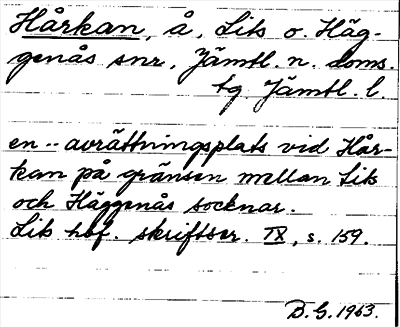 Hårkan, å, Lits o. Häg-
genås snr, Jämtl. n. doms.
tg. Jämtl. l.
en -- avrättningsplats vid Hår-
kan på gränsen mellan Lits
och Häggenås socknar.
Lits hbf. skriftser. IX, s. 159.
D.G. 1963.